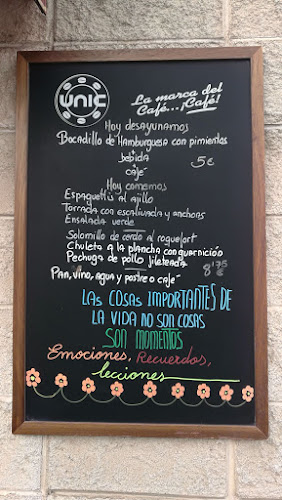 UNIC
La marca del
Café...¡Café!
Hoy desayunamos
Bocadillo de Hamburguesa con pimientos
+
bebida
+
café
5€
Hoy comemos
Espaguettis al ajillo
Torrada con escalivada y anchoas
Ensalada verde
Solomillo de cerdo al roquefort
Chuleta a la plancha con guarnición
Pechuga de pollo fileteada
Pan, vino, agua y postre o café
8'75€
LAS COSAS IMPORTANTES DE
LA VIDA NO SON COSAS
SON MOMENTOS
Emociones, Recuerdos,
lecciones